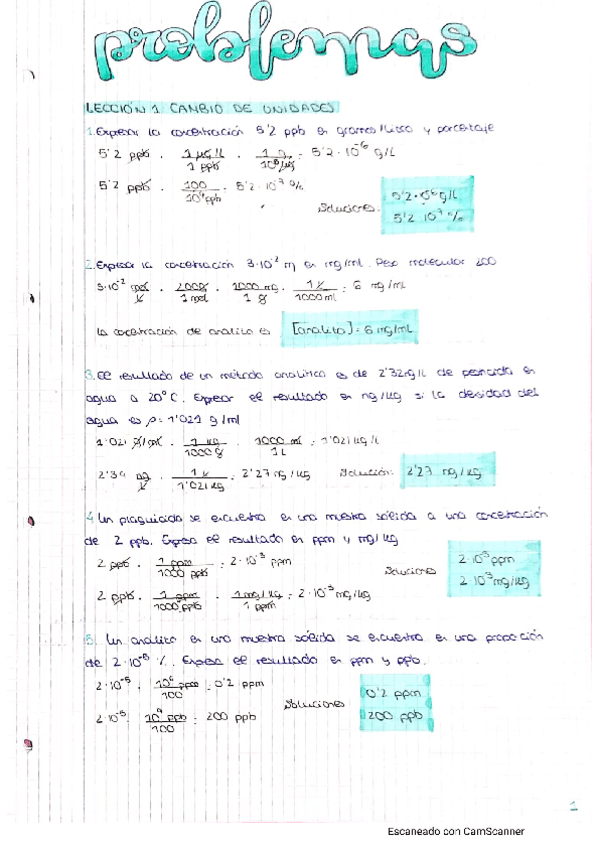 problemas
LECCIÓN 1 CAMBIO DE UNIDADES
1. Expresar la concentración 5'2 ppb en gramos/litro y porcentaje
5'2 ppb · 1 μg/L / 1 ppb · 1 g / 10⁶ μg : 5'2·10⁻⁶ g/L
5'2 ppb · 100 / 10⁹ ppb : 5'2·10⁻⁷ %
Soluciones:
5'2·10⁻⁶ g/L
5'2·10⁻⁷ %
2. Expresar la concentración 3·10⁻² M en mg/ml. Peso molecular 200
3·10⁻² mol / L · 200g / 1 mol · 1000 mg / 1 g · 1 L / 1000 ml : 6 mg/ml
la concentración de analito es [analito] = 6 mg/ml
3. El resultado de un método analítico es de 2'32 ng/L de pesticida en
agua a 20°C. Expresar el resultado en ng/kg si la densidad del
agua es ρ = 1'021 g/ml
1'021 g/ml · 1 kg / 1000 g · 1000 ml / 1 L : 1'021 kg/L
ng / L · 1 L / 1'021 kg : 2'27 ng/kg
Solución: 2'27 ng/kg
4. Un plaguicida se encuentra en una muestra sólida a una concentración
de 2 ppb. Expresa el resultado en ppm y mg/kg
2 ppb · 1 ppm / 1000 ppb : 2·10⁻³ ppm
2 ppb · 1 ppm / 1000 ppb · 1 mg/kg / 1 ppm : 2·10⁻³ mg/kg
Soluciones
2·10⁻³ ppm
2·10⁻³ mg/kg
5. Un analito en una muestra sólida se encuentra en una proporción
de 2·10⁻⁵ %. Expresa el resultado en ppm y ppb.
2·10⁻⁵ · 10⁶ ppm / 100 : 0'2 ppm
2·10⁻⁵ · 10⁹ ppb / 100 : 200 ppb
Soluciones
0'2 ppm
200 ppb
1
Escaneado con CamScanner